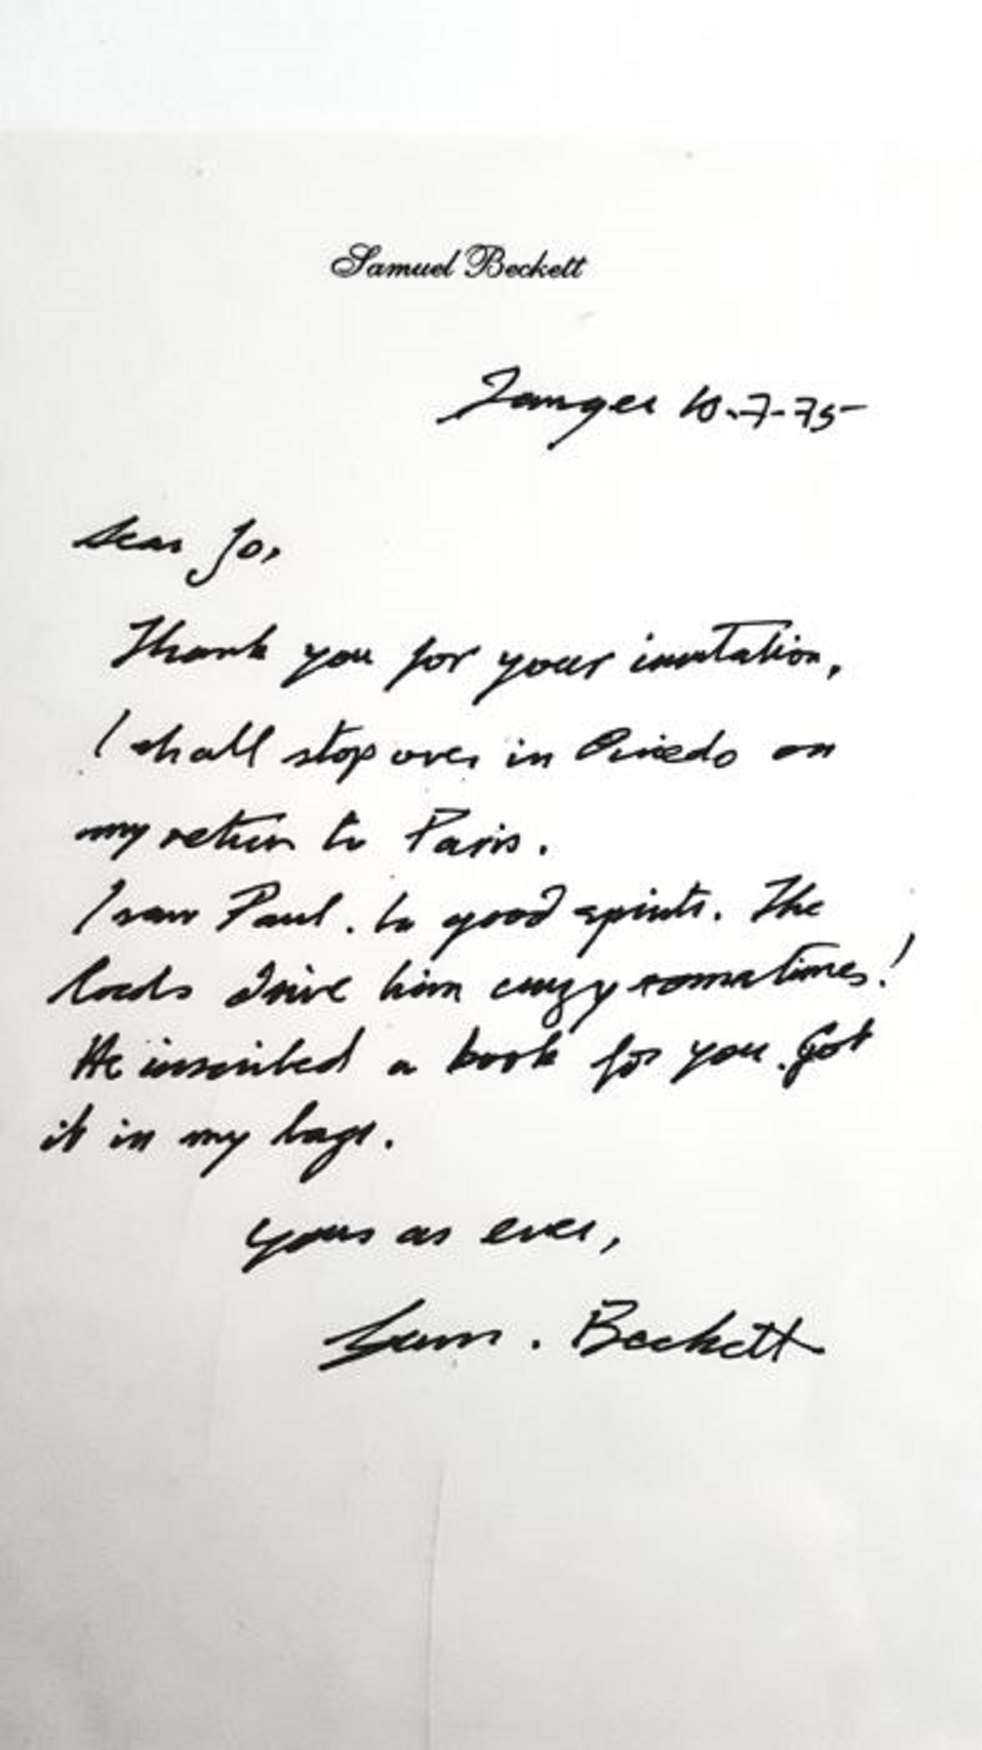 Samuel Beckett
Tanger 10-7-75
Dear Jo,
Thank you for your invitation,
I shall stop over in Oviedo on
my return to Paris.
I saw Paul. In good spirits. The
locals drive him crazy sometimes!
He inscribed a book for you. Got
it in my bags.
yours as ever,
Sam. Beckett